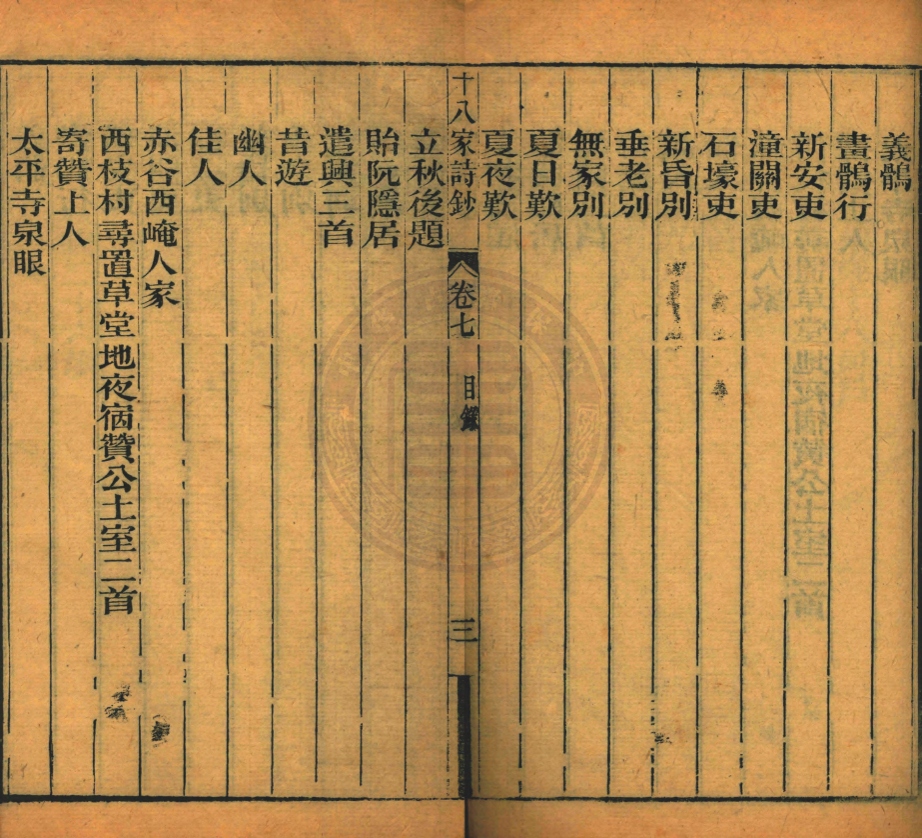 義鶻
畫鶻行
新安吏
潼關吏
石壕吏
新昏別
垂老別
無家別
夏日歎
夏夜歎
十八家詩鈔 卷七 目錄 三
立秋後題
貽阮隱居
遣興三首
昔遊
幽人
佳人
赤谷西崦人家
西枝村尋置草堂地夜宿贊公土室二首
寄贊上人
太平寺泉眼